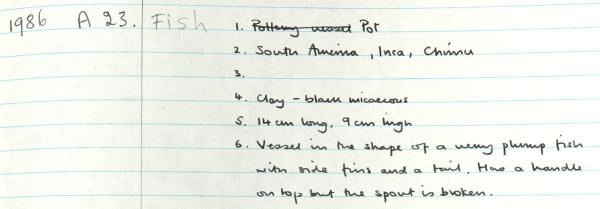 1986 A 23. Fish 1. Pottery vessel Pot
2. South America, Inca, Chimu
3.
4. Clay - black micaceous
5. 14cm long, 9cm high
6. Vessel in the shape of a very plump fish
with side fins and a tail. Has a handle
on top but the spout is broken.